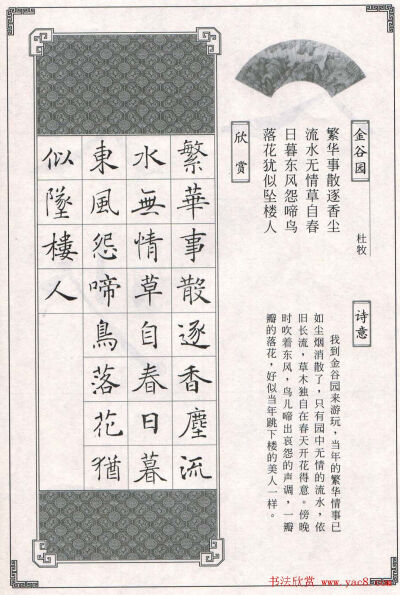 金谷园
杜牧
繁华事散逐香尘
流水无情草自春
日暮东风怨啼鸟
落花犹似坠楼人
诗意
我到金谷园来游玩，当年的繁华情事已
如尘烟消散了，只有园中无情的流水，依
旧长流，草木独自在春天开花得意。傍晚
时吹着东风，鸟儿啼出哀怨的声调，一瓣
瓣的落花，好似当年跳下楼的美人一样。
欣赏
繁華事散逐香塵流
水無情草自春日暮
東風怨啼鳥落花猶
似墜樓人
书法欣赏 www.yac8.com